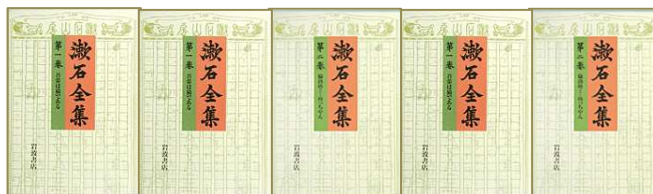 漱石全集
第一巻 吾輩は猫である
岩波書店
漱石全集
第一巻 吾輩は猫である
岩波書店
漱石全集
第二巻 倫敦塔ほか・坊っちやん
岩波書店
漱石全集
第一巻 吾輩は猫である
岩波書店
漱石全集
第二巻 倫敦塔ほか・坊っちやん
岩波書店